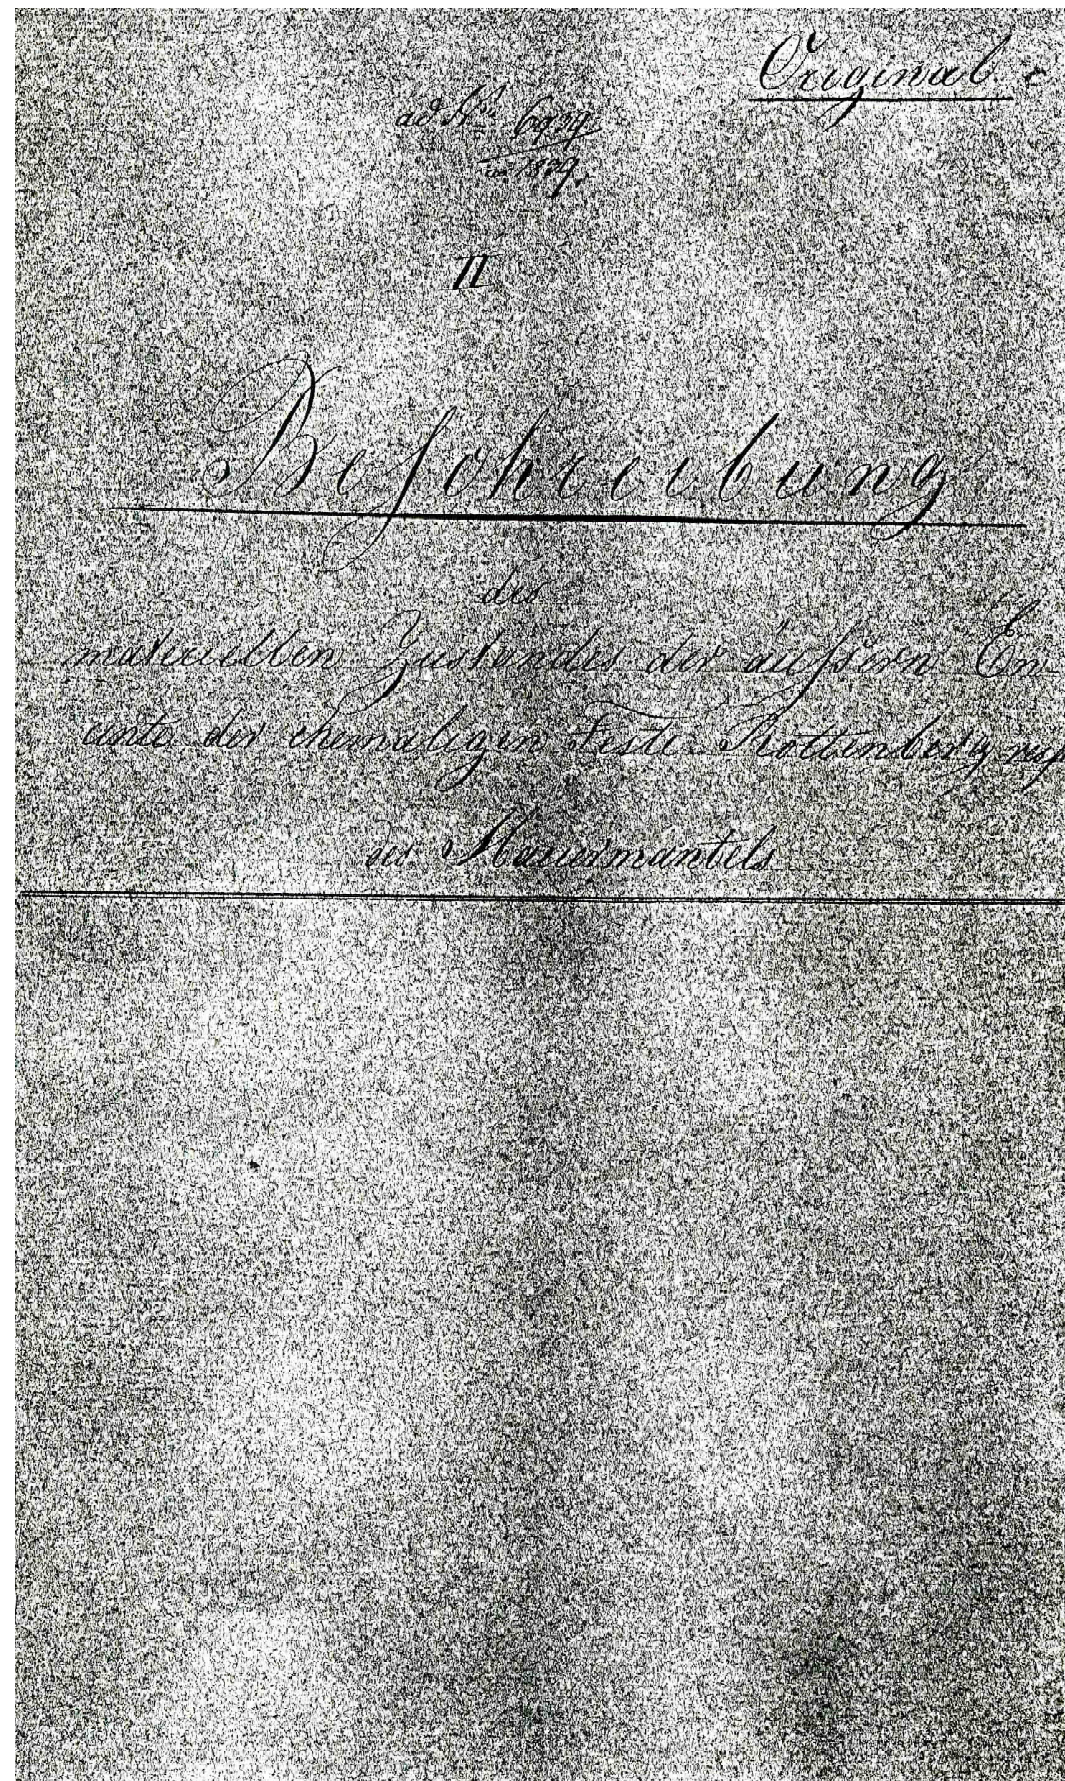 Original.
ad No.
II
Beschreibung
des
materiellen Zustandes der äußern En
ceinte der ehemaligen Feste Rottenberg resp
des Mauermantels